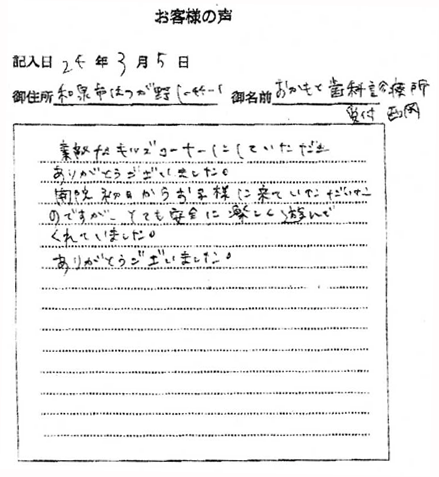 お客様の声
記入日 24年 3月 5日
御住所 和泉市はつが野 御名前 おかもと歯科診療所
受付 西岡
素敵なキッズコーナーにしていただき
ありがとうございました。
開院初日からお子様に来ていただいた
のですが、とても安全に楽しく遊んで
くれていました。
ありがとうございました。